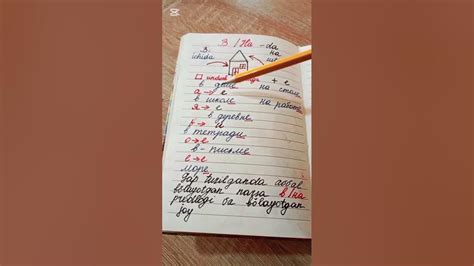 В / На -da
В на
ichida
+ е
в доме на столе
а → е
в школе на работе
я → е
в деревне
ь → и
в тетради
о → е
в - письме
е → е
море
Gap tuzilganda avval
bo'layotgan narsa в/на
predlogi va bo'layotgan
joy